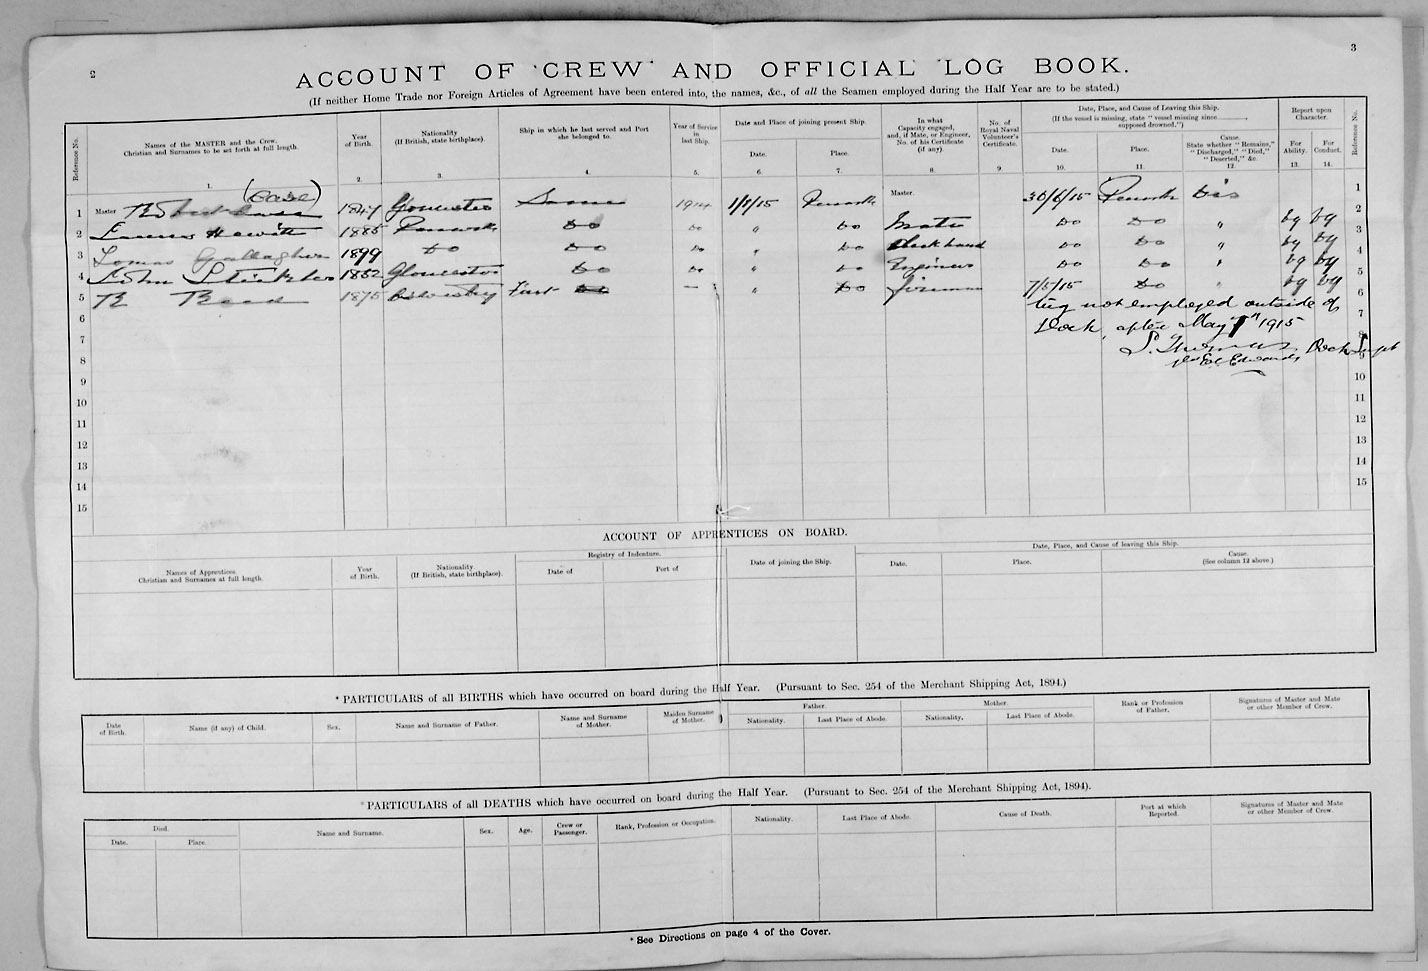 2
3
ACCOUNT OF CREW AND OFFICIAL LOG BOOK.
(If neither Home Trade nor Foreign Articles of Agreement have been entered into, the names, &c., of all the Seamen employed during the Half Year are to be stated.)
Reference No.
Names of the MASTER and the Crew.
Christian and Surnames to be set forth at full length.
1.
Year
of Birth.
2.
Nationality
(If British, state birthplace).
3.
Ship in which he last served and Port
she belonged to.
4.
Year of Service
in
last Ship.
5.
Date and Place of joining present Ship.
Date.
6.
Place.
7.
In what
Capacity engaged,
and, if Mate, or Engineer,
No. of his Certificate
(if any).
8.
No. of
Royal Naval
Volunteer's
Certificate.
9.
Date, Place, and Cause of Leaving this Ship.
(If the vessel is missing, state "vessel missing since
supposed drowned.")
Date.
10.
Place.
11.
Cause.
State whether "Remains,"
"Discharged," "Died,"
"Deserted," &c.
12.
Report upon
Character.
For
Ability.
13.
For
Conduct.
14.
Reference No.
1 Master (Case) 1847 Gloucester Same 1914 1/1/15 Penarth Master. 30/6/15 Penarth Dis 1
2 Hewitt 1885 Do Do " Do Mate Do Do " vg vg 2
3 Gallagher 1899 Do Do Do " Do Deck hand Do Do " vg vg 3
4 John 1852 Gloucester Do Do " Do Engineer Do Do " vg vg 4
5 Reed 1875 First — " Do Fireman 7/5/15 Do " vg vg 5
6 tug not employed outside of 6
7 Dock after May 7th 1915 7
8 S. Thomas Dock Supt 8
9 Edwards 9
10 10
11 11
12 12
13 13
14 14
15 15
ACCOUNT OF APPRENTICES ON BOARD.
Names of Apprentices.
Christian and Surnames at full length.
Year
of Birth.
Nationality.
(If British, state birthplace).
Registry of Indenture.
Date of
Port of
Date of joining the Ship.
Date, Place, and Cause of leaving this Ship.
Date.
Place.
Cause.
(See column 12 above.)
* PARTICULARS of all BIRTHS which have occurred on board during the Half Year. (Pursuant to Sec. 254 of the Merchant Shipping Act, 1894.)
Date
of Birth.
Name (if any) of Child.
Sex.
Name and Surname of Father.
Name and Surname
of Mother.
Maiden Surname
of Mother.
Father.
Nationality.
Last Place of Abode.
Mother.
Nationality.
Last Place of Abode.
Rank or Profession
of Father.
Signatures of Master and Mate
or other Member of Crew.
*PARTICULARS of all DEATHS which have occurred on board during the Half Year. (Pursuant to Sec. 254 of the Merchant Shipping Act, 1894).
Died.
Date.
Place.
Name and Surname.
Sex.
Age.
Crew or
Passenger.
Rank, Profession or Occupation.
Nationality.
Last Place of Abode.
Cause of Death.
Port at which
Reported.
Signatures of Master and Mate
or other Member of Crew.
* See Directions on page 4 of the Cover.